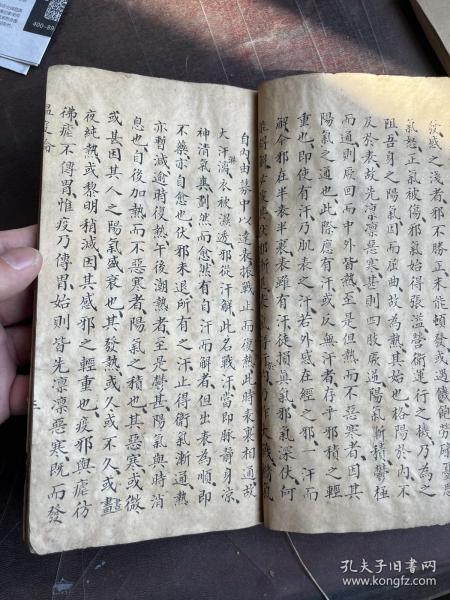 發感之淺者邪不勝正未能頓發或遇饑飽勞碌憂思
氣怒正氣被傷邪氣始得張溢營衛運行之機乃為之
阻吾身之陽氣因而屈曲故為熱其始也格陽於內不
及於表故先凜凜惡寒甚則四肢厥逆陽氣漸積鬱極
而通則厥回而中外皆熱至是但熱而不惡寒者因其
陽氣之通也此際應有汗或反無汗者存乎邪積之輕
重也即使有汗乃肌表之汗若外感在經之邪一汗而
解今邪在半表半裏表雖有汗徒損真氣邪氣深伏何
自內由募中以達表振戰止而復熱此時表裏相通故
大汗淋漓衣被濕透邪從汗解此名戰汗當即脈靜身涼
神清氣爽劃然而愈然有自汗而解者但出表為順即
不藥亦自愈也伏邪未退所有之汗止得衛氣漸通熱
亦暫減逾時復熱午後潮熱者至是鬱甚陽氣與時消
息也自後加熱而不惡寒者陽氣之積也其惡寒或微
或甚因其人之陽氣盛衰也其發熱或久或不久或晝
夜純熱或黎明稍減因其感邪之輕重也疫邪與瘧彷
彿瘧不傳胃惟疫乃傳胃始則皆先凜凜惡寒既而發
溫疫論
三
400-89
孔夫子旧书网
www.kongfz.com